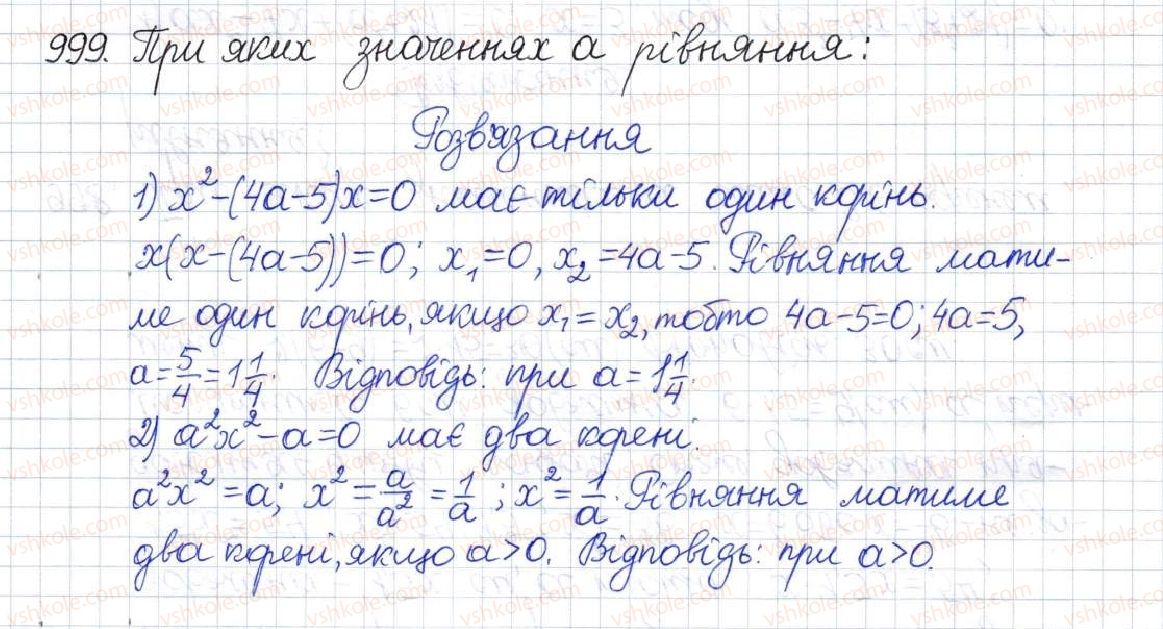 999. При яких значеннях a рівняння:
Розв'язання
1) x²-(4a-5)x=0 має тільки один корінь.
x(x-(4a-5))=0; x₁=0, x₂=4a-5. Рівняння мати-
ме один корінь, якщо x₁=x₂, тобто 4a-5=0; 4a=5,
a=5/4=1 1/4. Відповідь: при a=1 1/4.
2) a²x²-a=0 має два корені.
a²x²=a; x²=a/a²=1/a; x²=1/a. Рівняння матиме
два корені, якщо a>0. Відповідь: при a>0.